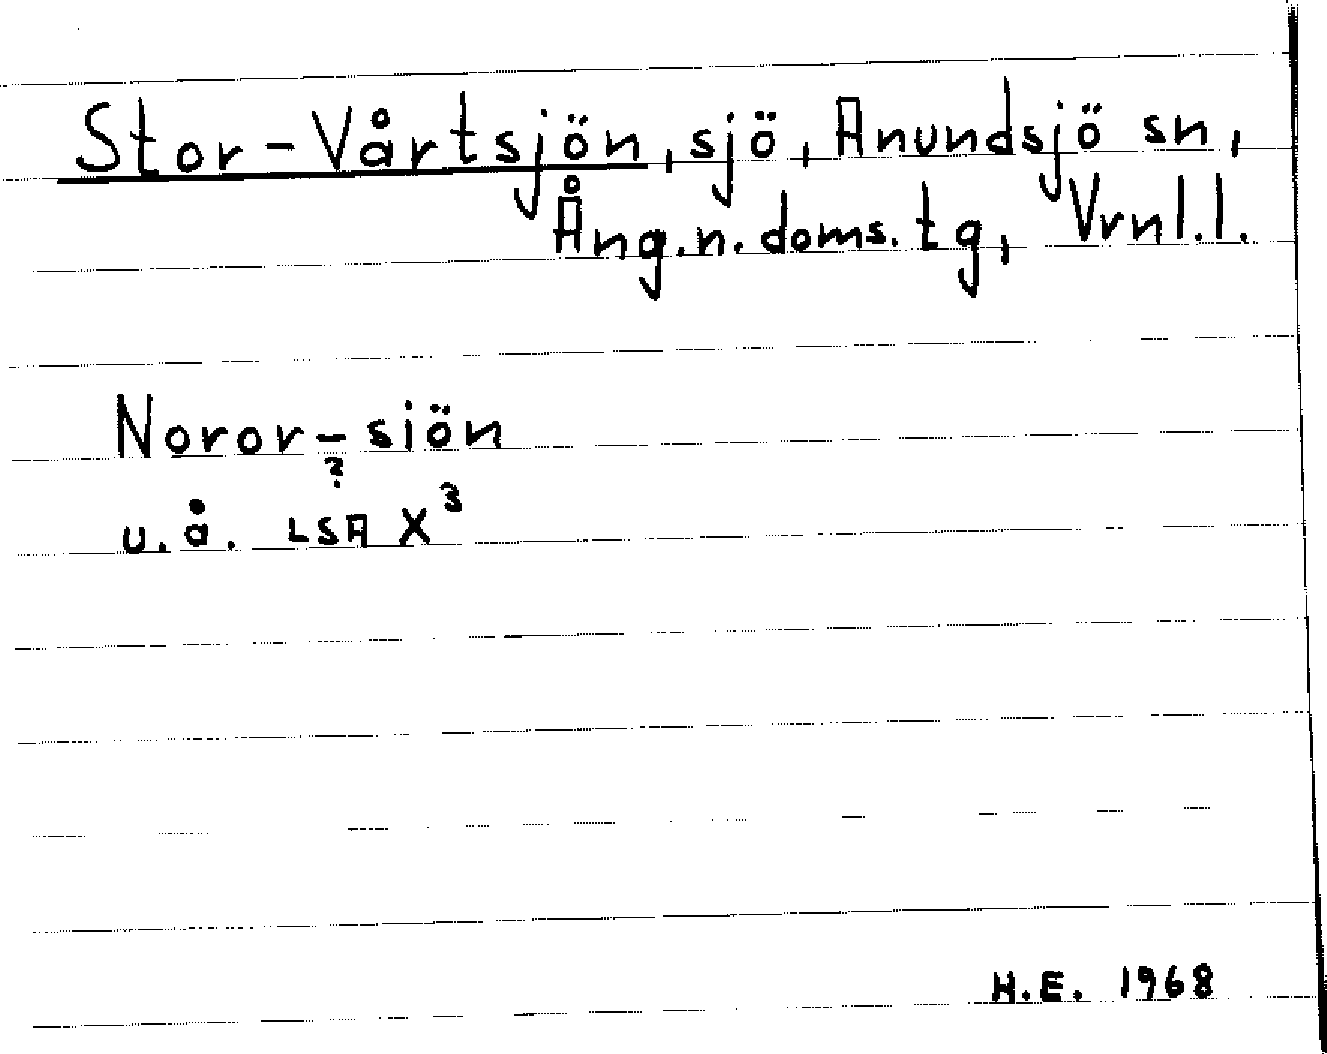 Stor-Vårtsjön, sjö, Anundsjö sn,
Ång.n.doms.tg, Vrnl.l.
Noror-siön
?
u.å. LSA X³
H.E. 1968